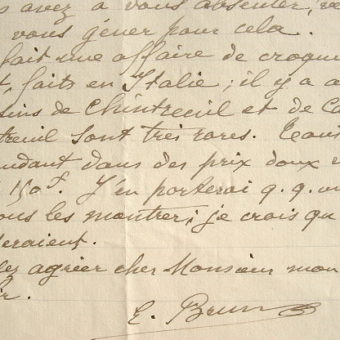 avez à vous absenter, ve
vous gêner pour cela.
fait une affaire de croqu
t, faits en Italie; il y a a
sins de Chintreuil et de Ca
treuil sont très rares. Tous
endant dans des prix doux
150f. J'en porterai q.q. un
ous les montrer; je crois qu
eraient.
ez agréer cher Monsieur mon
ir.
E. Brun